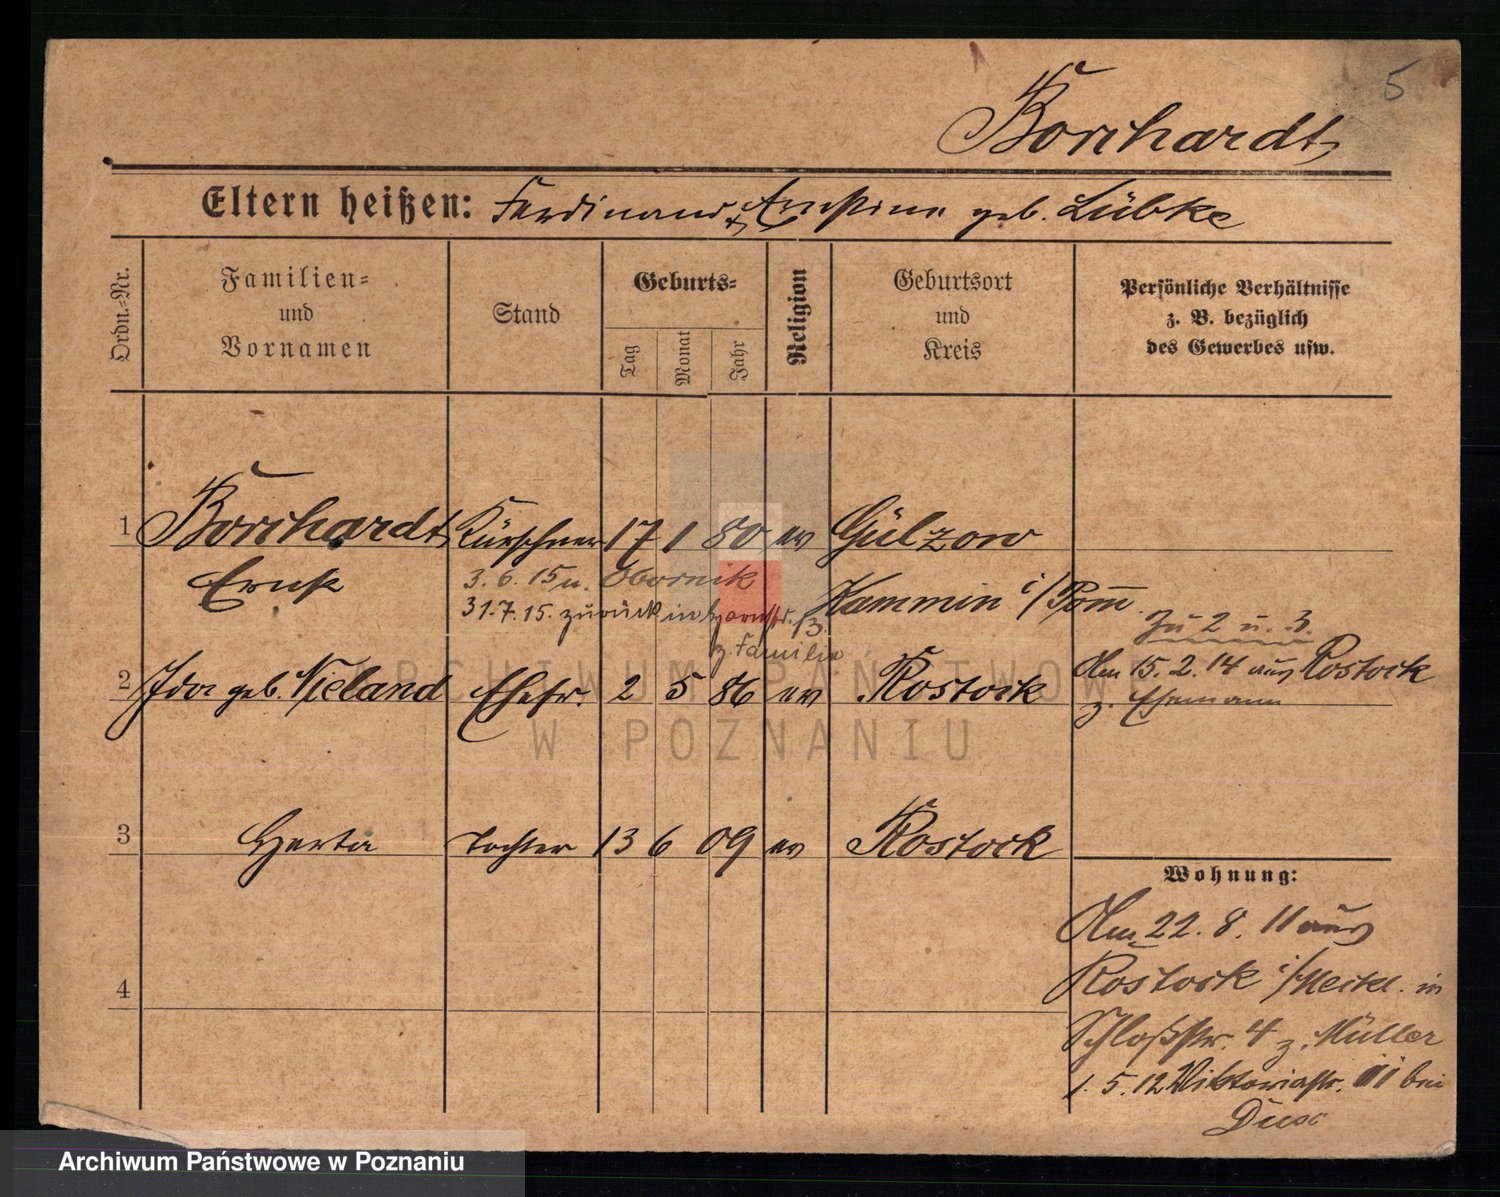 5
Borchardt
Eltern heißen: Ferdinand & Ernstine geb. Lübke
Ordn.-Nr.
Familien-
und
Vornamen
Stand
Geburts-
Tag
Monat
Jahr
Religion
Geburtsort
und
Kreis
Persönliche Verhältnisse
z. B. bezüglich
des Gewerbes usw.
1 Borchardt Kürschner 17 1 80 ev Gülzow
Ernst
3. 6. 15 n. Obornik
Kammin i/Pom.
31.7.15. zurück in 13.
z. Familie
zu 2 u. 3.
2 Ida geb. Nieland Ehefr. 2 5 86 ev Rostock
Am 15. 2. 14 aus Rostock
z. Ehemann
ARCHIWUM PAŃSTWOWE
W POZNANIU
3 Herta Tochter 13 6 09 ev Rostock
4
Wohnung:
Am 22. 8. 11 aus
Rostock i/Meckl. in
Schloßstr. 4 z. Müller
1. 5. 12 Viktoriastr. bei
Archiwum Państwowe w Poznaniu